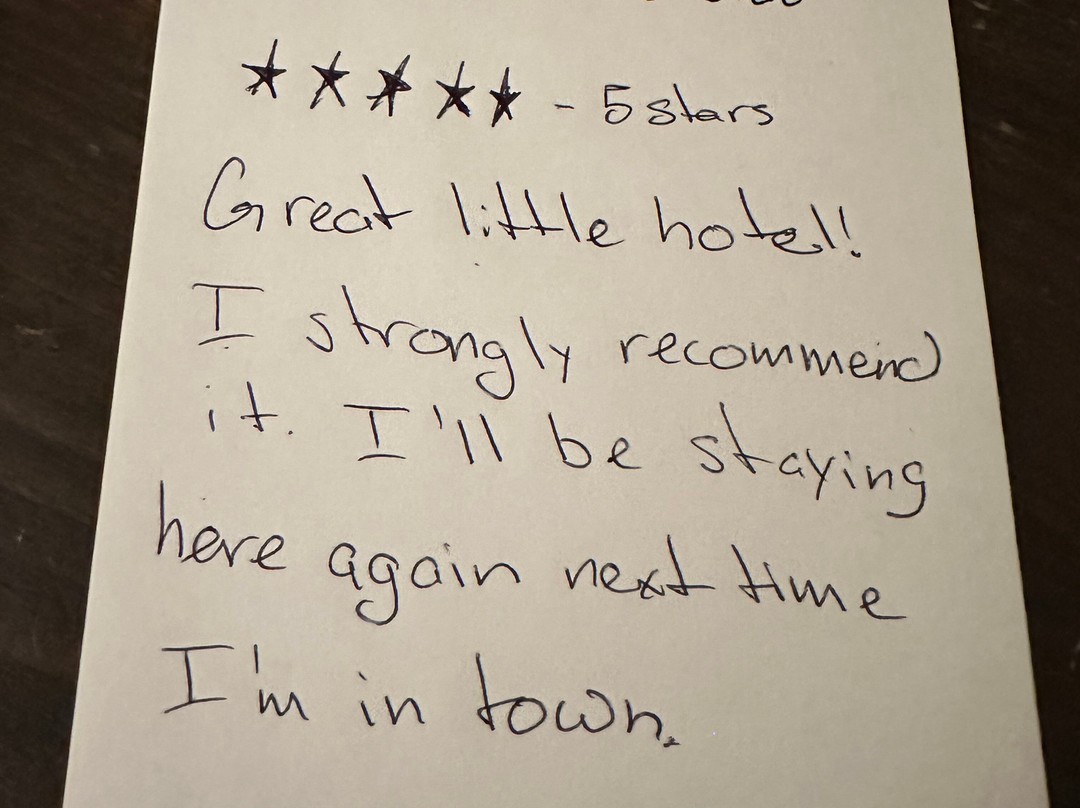 ★★★★★ - 5 stars
Great little hotel!
I strongly recommend
it. I'll be staying
here again next time
I'm in town.